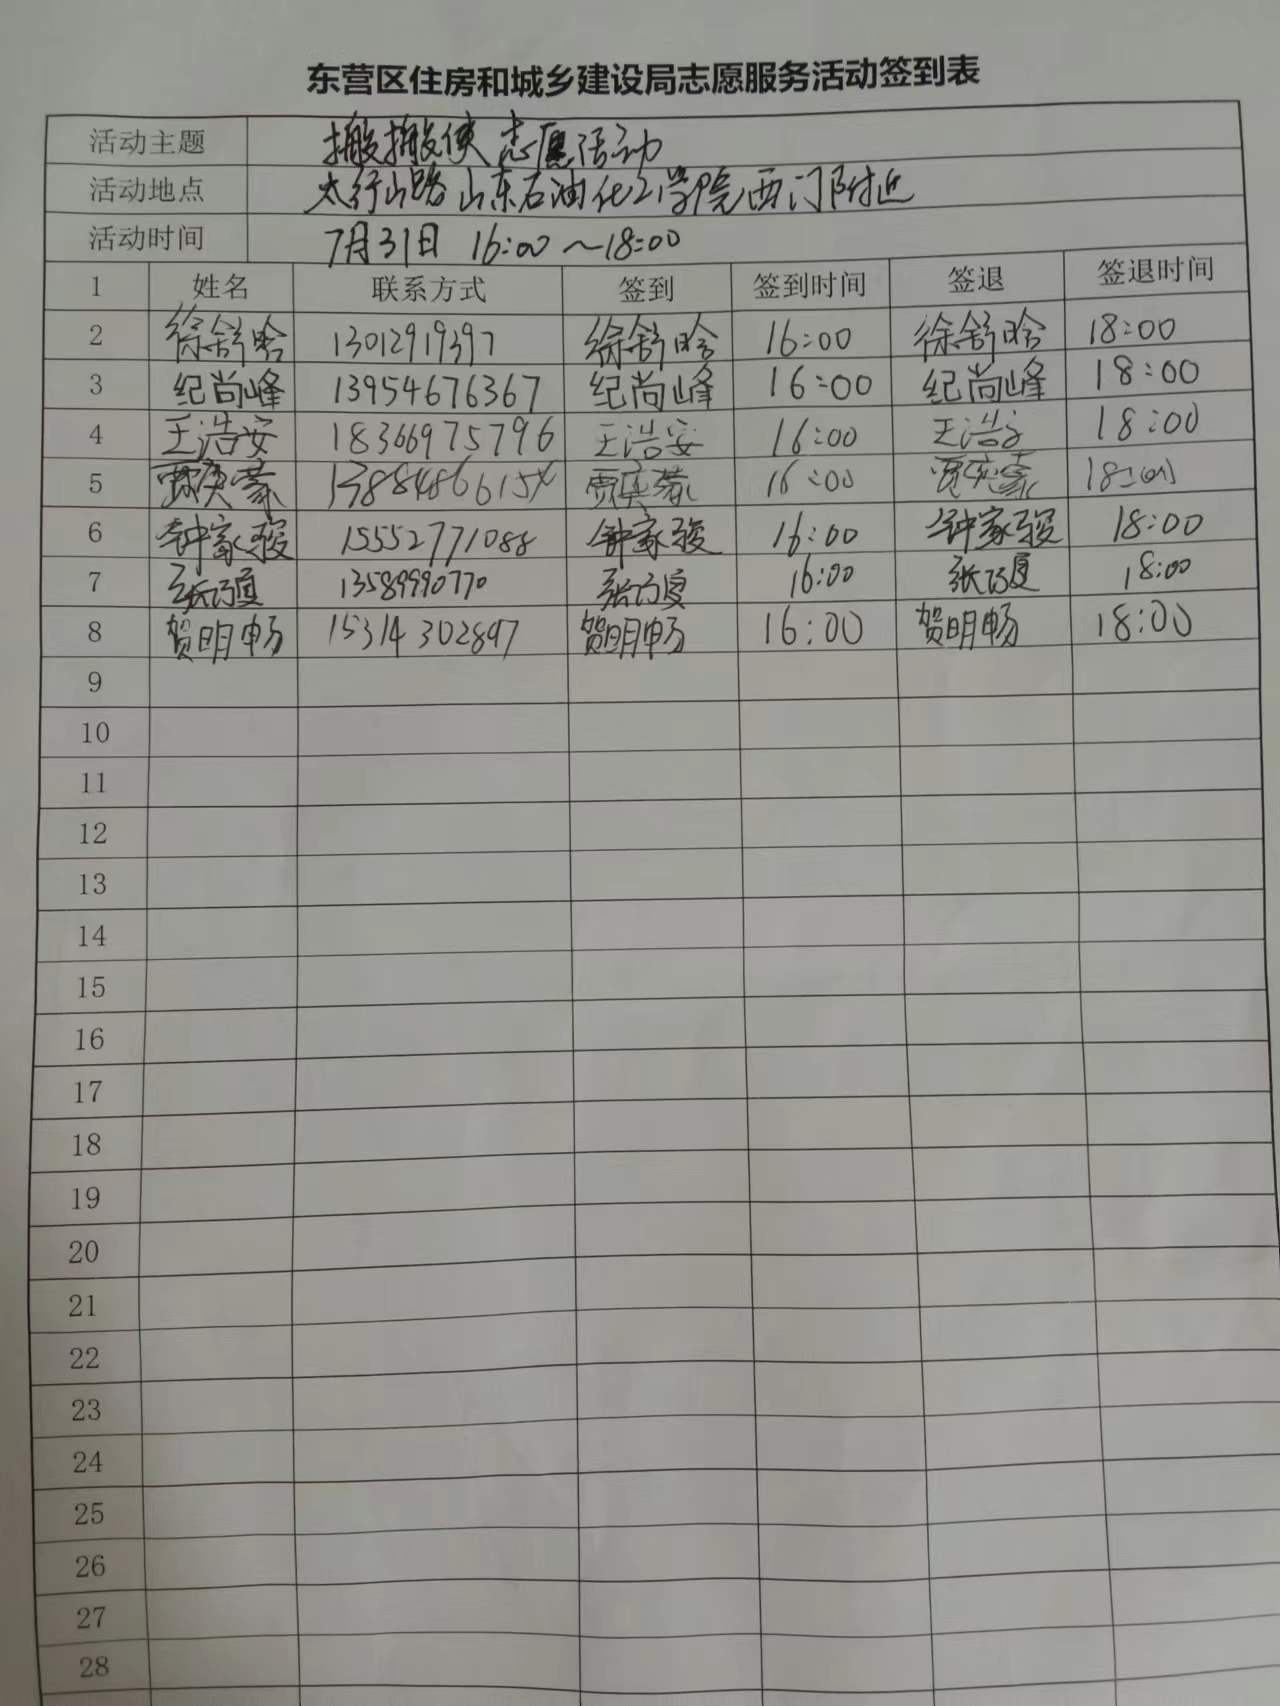 东营区住房和城乡建设局志愿服务活动签到表
活动主题 搬搬侠志愿活动
活动地点 太行山路山东石油化工学院西门附近
活动时间 7月31日 16:00～18:00
1 姓名 联系方式 签到 签到时间 签退 签退时间
2 徐舒晗 13012919397 徐舒晗 16:00 徐舒晗 18:00
3 纪尚峰 13954676367 纪尚峰 16:00 纪尚峰 18:00
4 王浩安 18366975796 王浩安 16:00 王浩 18:00
5 贾奕蒙 贾奕蒙 16:00 贾奕蒙 18:00
6 钟家骏 15552771088 钟家骏 16:00 钟家骏 18:00
7 张巧夏 13589990770 张巧夏 16:00 张巧夏 18:00
8 贺明畅 15314302897 贺明畅 16:00 贺明畅 18:00
9
10
11
12
13
14
15
16
17
18
19
20
21
22
23
24
25
26
27
28